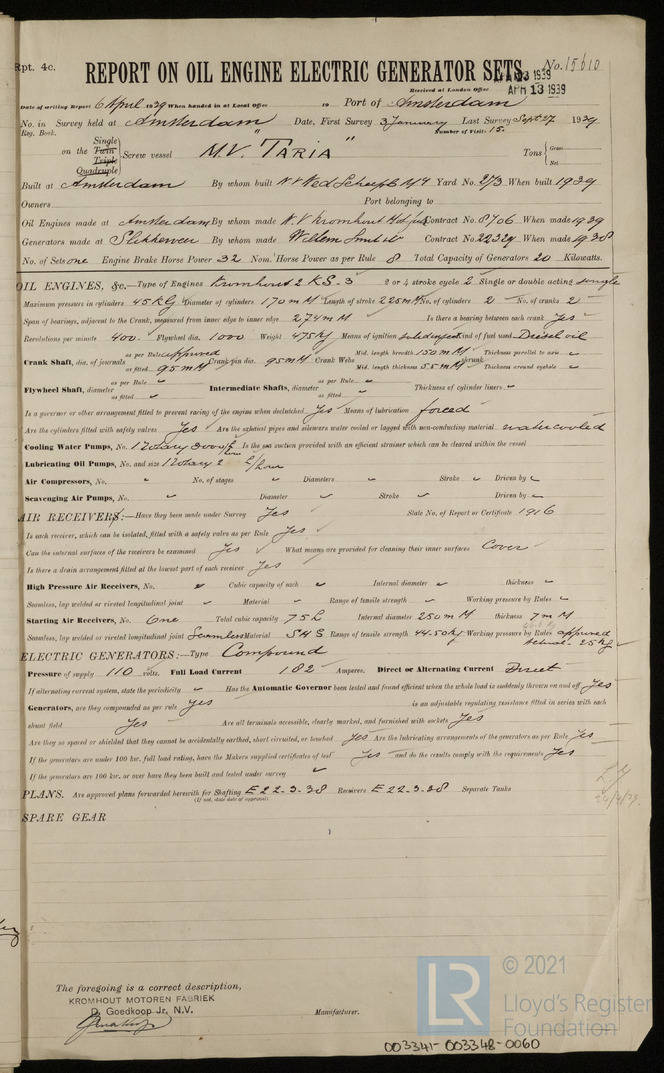 Rpt. 4c.
REPORT ON OIL ENGINE ELECTRIC GENERATOR SETS.
No. 15610
APR 13 1939
Received at London Office
Date of writing Report 6 April 1939 When handed in at Local Office 19 Port of Amsterdam
No. in Survey held at Amsterdam Date, First Survey 3 January Last Survey Sept 27 1939
Reg. Book. Number of Visits 15.
on the Single Twin Triple Quadruple Screw vessel M.V. "TARIA" Tons Gross Net
Built at Amsterdam By whom built Yard No. 273 When built 1939
Owners Port belonging to
Oil Engines made at Amsterdam By whom made N.V. Kromhout Contract No. 8706 When made 1939
Generators made at Slikkerveer By whom made Willem Smit Contract No. 22329 When made 1938
No. of Sets one Engine Brake Horse Power 32 Nom. Horse Power as per Rule 8 Total Capacity of Generators 20 Kilowatts.
OIL ENGINES, &c.—Type of Engines Kromhout 2 KS-3 2 or 4 stroke cycle 2 Single or double acting single
Maximum pressure in cylinders 45 KG Diameter of cylinders 170 mM Length of stroke 225 mM No. of cylinders 2 No. of cranks 2
Span of bearings, adjacent to the Crank, measured from inner edge to inner edge 274 mM Is there a bearing between each crank Yes
Revolutions per minute 400. Flywheel dia. 1000 Weight 475 kg Means of ignition solid inject Kind of fuel used Diesel oil
Crank Shaft, dia. of journals as per Rule approved as fitted 95 mM Crank pin dia. 95 mM Crank Webs Mid. length breadth 150 mM Mid. length thickness 55 mM shrunk Thickness parallel to axis Thickness around eyehole
Flywheel Shaft, diameter as per Rule as fitted Intermediate Shafts, diameter as per Rule as fitted Thickness of cylinder liners
Is a governor or other arrangement fitted to prevent racing of the engine when declutched Yes Means of lubrication forced
Are the cylinders fitted with safety valves Yes Are the exhaust pipes and silencers water cooled or lagged with non-conducting material water cooled
Cooling Water Pumps, No. 1 rotary 3000 L/hour Is the sea suction provided with an efficient strainer which can be cleared within the vessel
Lubricating Oil Pumps, No. and size 1 rotary 2 L/hour
Air Compressors, No. No. of stages Diameters Stroke Driven by
Scavenging Air Pumps, No. Diameter Stroke Driven by
AIR RECEIVERS:—Have they been made under Survey Yes State No. of Report or Certificate 1916
Is each receiver, which can be isolated, fitted with a safety valve as per Rule Yes
Can the internal surfaces of the receivers be examined Yes What means are provided for cleaning their inner surfaces Cover
Is there a drain arrangement fitted at the lowest part of each receiver Yes
High Pressure Air Receivers, No. Cubic capacity of each Internal diameter thickness
Seamless, lap welded or riveted longitudinal joint Material Range of tensile strength Working pressure by Rules
Starting Air Receivers, No. One Total cubic capacity 75 L Internal diameter 250 mM thickness 7 mM
Seamless, lap welded or riveted longitudinal joint Seamless Material SMS Range of tensile strength 44.50 kg Working pressure by Rules approved
Actual 25 kg
ELECTRIC GENERATORS:—Type Compound
Pressure of supply 110 volts. Full Load Current 182 Amperes. Direct or Alternating Current Direct
If alternating current system, state the periodicity Has the Automatic Governor been tested and found efficient when the whole load is suddenly thrown on and off Yes
Generators, are they compounded as per rule Yes is an adjustable regulating resistance fitted in series with each
shunt field Yes Are all terminals accessible, clearly marked, and furnished with sockets Yes
Are they so spaced or shielded that they cannot be accidentally earthed, short circuited, or touched Yes Are the lubricating arrangements of the generators as per Rule Yes
If the generators are under 100 kw. full load rating, have the Makers supplied certificates of test Yes and do the results comply with the requirements Yes
If the generators are 100 kw. or over have they been built and tested under survey
PLANS. Are approved plans forwarded herewith for Shafting E 22-3-38 Receivers E 22-3-38 Separate Tanks
(If not, state date of approval)
24/4/39
SPARE GEAR
The foregoing is a correct description,
KROMHOUT MOTOREN FABRIEK
D. Goedkoop Jr. N.V.
Manufacturer.
LR
© 2021
Lloyd's Register
Foundation
003341-003348-0060